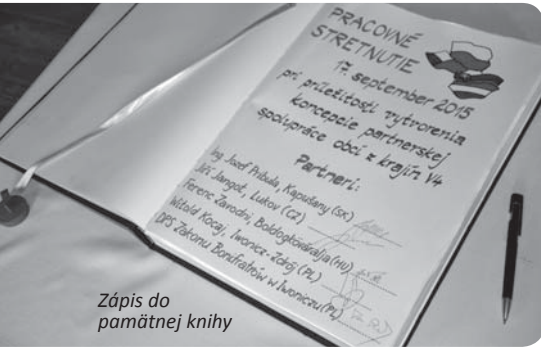 PRACOVNÉ
STRETNUTIE
17. september 2015
pri príležitosti vytvorenia
koncepcie partnerskej
spolupráce obcí z krajín V4
Partneri:
Ing. Jozef Pribula, Kapušany (SK)
Jiří Jangot, Lutov (CZ)
Ferenc Zavodni, (HU)
Witold Kocaj, Iwonicz-Zdrój (PL)
DPS Zakonu Bonifratrów w Iwoniczu (PL)
Zápis do
pamätnej knihy